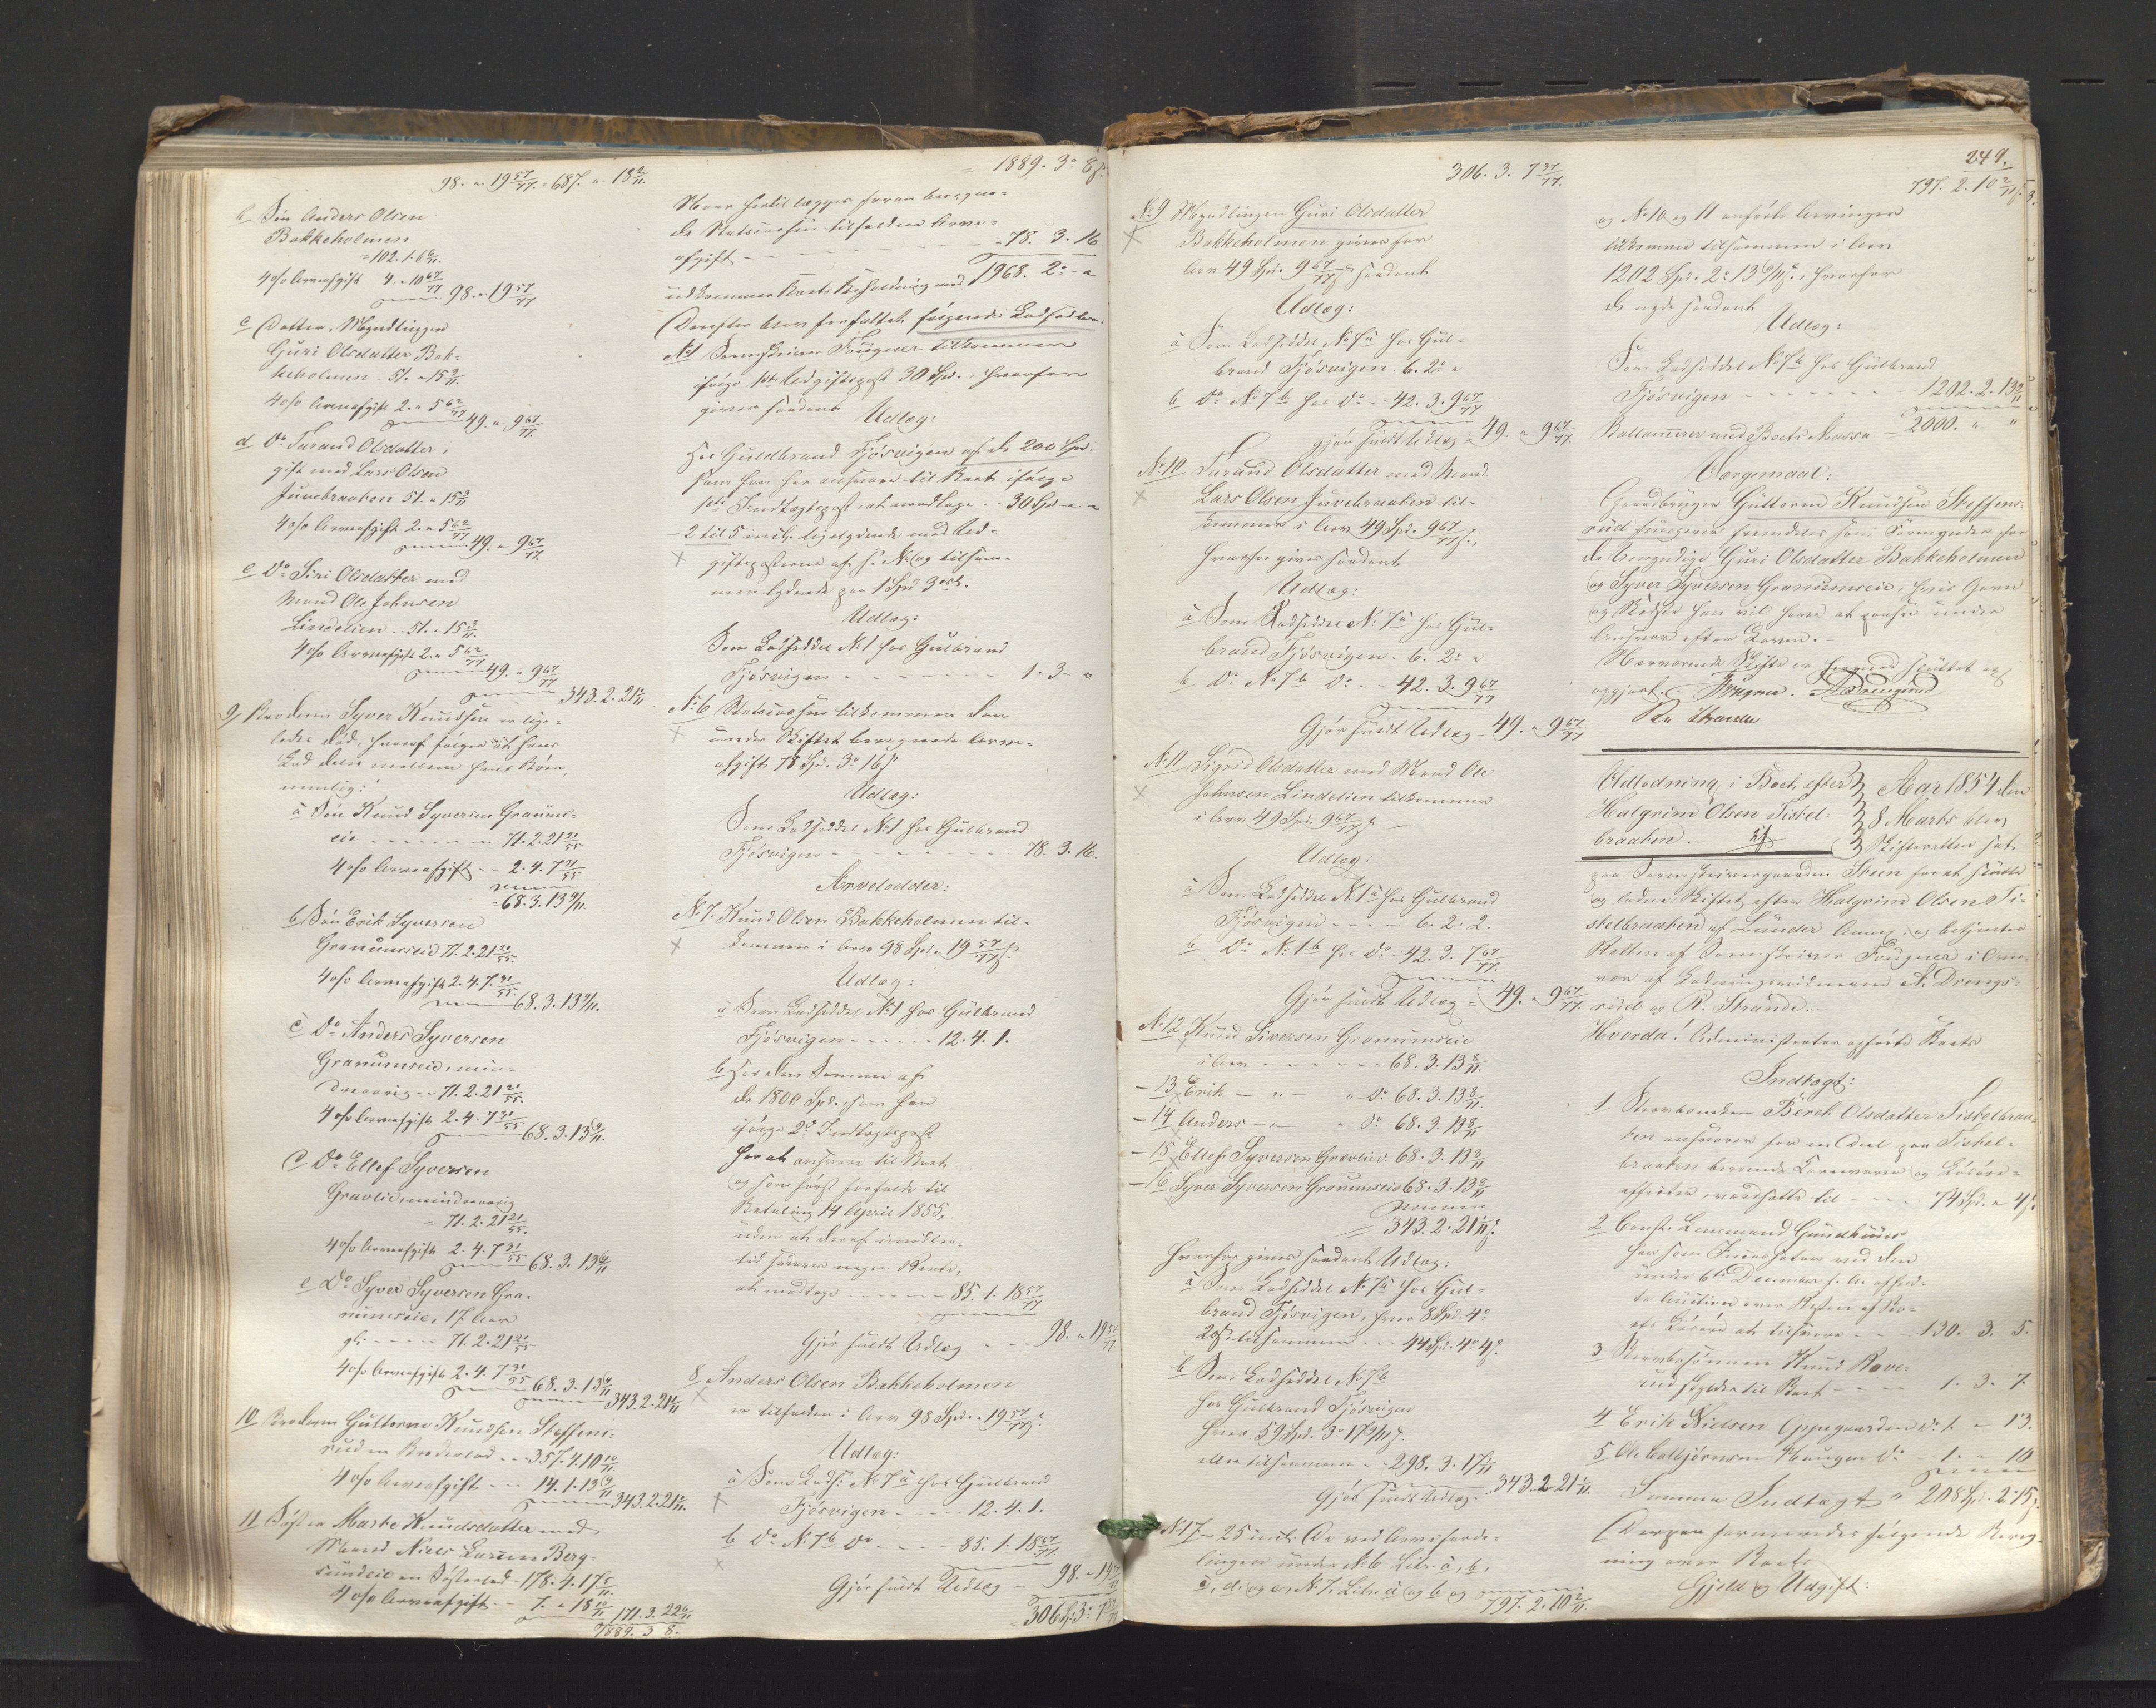 98. " 19 57/77. = 687. " 18 2/11.
b Søn Anders Olsen
Bakkeholmen
= 102. 1. 6 6/11.
4 o/o Arveafgift 4. " 10 67/77
98. " 19 57/77
c Datter, Myndlingen
Guri Olsdatter Bak-
keholmen - 51. " 15 3/11.
4 o/o Arveafgift 2. " 5 62/77
49. " 9 67/77.
d Do Turand Olsdatter,
gift med Lars Olsen
Juvebraaten 51. " 15 3/11
4 o/o Arveafgift 2. " 5 62/77
49. " 9 67/77.
e Do Siri Olsdatter med
Mand Ole Johnsen
Lindelien - 51. " 15 3/11.
4 o/o Arveafgift 2. " 5 62/77
49. " 9 67/77
343. 2. 21 1/11.
9, Broderen Syver Knudsen er lige-
ledes død, hvoraf følger at hans
Lod deles mellem hans Børn,
nemlig:
a Søn Knud Syversen Granums-
eie - - - 71. 2. 21 21/55
4 o/o Arveafgift - - 2. 4. 7 31/55
= 68. 3. 13 9/11.
b, Søn Erik Syversen
Granumseid 71. 2. 21 21/55.
4 o/o Arveafgift 2. 4. 7 31/55.
68. 3. 13 9/11.
c Do Anders Syversen
Granumseie, min-
dreaarig - - 71. 2. 21 21/55.
4 o/o Arveafgift 2. 4. 7 31/55
68. 3. 13 9/11.
d Do Ellef Syversen
Gravlie, mindreaarig
= 71. 2. 21 21/55.
4 o/o Arveafgift 2. 4. 7 31/55
68. 3. 13 9/11
e Do Syver Syversen Gra-
numseie, 17 Aar
gl. - - - 71. 2. 21 21/55
4 o/o Arveafgift 2. 4. 7 31/55
68. 3. 13 9/11
343. 2. 21 1/11
10 Broderen Guttorm Knudsen Steffens-
rud en Broderlod - - 357. 4. 10 10/11
4 o/o Arveafgift - - 14. 1. 13 9/11
343. 2. 21 1/11.
11 Søster Marte Knudsdatter med
Mand Niels Larsen Berg-
sundeie en Søsterlod - 178. 4. 17 5/11.
4 o/o Arveafgift - - 7. " 18 10/11
171. 3. 22 6/11
1889. 3 8.
= 1889. 3o 8 s.
Naar hertil lægges foran beregne-
de Statscassen tilfaldne Arve-
afgift - - - - - 78. 3. 16
udkommer Boets Beholdning med 1968. 2o - "
Derefter blev forfattet følgende Lodsedler:
No 1 Sorenskriver Fougner tilkommer
ifølge 1ste Udgiftspost 30 Spd., hvorfor
gives saadant
Udlæg:
Hos Guldbrand Fjøsvigen af de 200 Spd.
som han har ansvare til Boet ifølge
1ste Indtægtspost, at modtage - - 30 Spd. " "
- 2 til 5 incl. ligelydende med Ud-
giftsposterne af s. No og tilsam-
men lydende paa 1 Spd 3 ort.
Udlæg:
Som Lodseddel No 1 hos Gulbrand
Fjøsvigen - - - - - 1. 3. "
No 6 Statscassen tilkommer den
under Skiftet beregnede Arve-
afgift 78 Spd. 3o 16 s
Udlæg:
Som Lodseddel No 1 hos Gulbrand
Fjøsvigen - - - - - 78. 3. 16.
Arvelodder:
No 7. Knud Olsen Bakkeholmen til-
kommer i Arv 98 Spd. " 19 57/77 s.
Udlæg:
a Som Lodseddel No 1 hos Gulbrand
Fjøsvigen - - - - 12. 4. 1.
b Hos den Samme af
de 1800 Spd., som han
ifølge 2d Indtægtspost
har at ansvare til Boet
og som først forfalde til
Betaling 14 April 1855,
uden at deraf imidler-
tid svares nogen Rente,
at modtage - - - - 85. 1. 18 57/77
Gjør fuldt Udlæg - - - 98. " 19 57/77
8 Anders Olsen Bakkeholmen
er tilfalden i Arv 98 Spd. " 19 57/77 s.
Udlæg:
a Som Lods. No 7 a hos Gulbrand
Fjøsvigen - - - 12. 4. 1.
b Do No 7 b Do - - - 85. 1. 18 57/77.
Gjør fuldt Udlæg - 98. " 19 57/77
= 306 Sp. 3o 7 37/77
306. 3. 7 37/77.
No 9 Myndlingen Guri Olsdatter
Bakkeholmen gives for
Arv 49 Spd. 9 67/77 s saadant
Udlæg:
a Som Lodseddel No 7 a hos Gul-
brand Fjøsvigen - 6. 2o "
b Do No 7 b hos Do - - 42. 3. 9 67/77
gjør fuldt Udlæg = 49. " 9 67/77.
No 10 Turand Olsdatter med Mand
Lars Olsen Juvebraaten til-
kommer i Arv 49 Spd. 9 67/77 s.,
hvorfor gives saadant
Udlæg:
a Som Lodseddel No 7 a hos Gul-
brand Fjøsvigen - 6. 2o "
b Do No 7 b Do - - 42. 3. 9 67/77
Gjør fuldt Udlæg - 49. " 9 67/77
No 11 Sigrid Olsdatter med Mand Ole
Johnsen Lindelien tilkommer
i Arv 49 Spd. 9 67/77 s
Udlæg:
a Som Lodseddel No 1 a hos Gulbrand
Fjøsvigen - - - - 6. 2. 2.
b Do No 1 b hos Do - 42. 3. 7 67/77.
Gjør fuldt Udlæg = 49. " 9 67/77.
No 12 Knud Siversen Granumseie
i Arv - - - - 68. 3. 13 8/11.
- 13 Erik - " - " Do 68. 3. 13 8/11.
- 14 Anders - " - " Do 68. 3. 13 8/11
- 15 Ellef Syversen Gravlie Do 68. 3. 13 8/11
- 16 Syver Syversen Granumseie 68. 3. 13 8/11
= 343. 2. 21 1/11 s.
hvorfor gives saadant Udlæg:
a Som Lodseddel No 7 a hos Gul-
brand Fjøsvigen, hver 8 Spd. 4o
20 s. tilsammen - - 44 Spd. 4o 4 s.
b Som Lodseddel No 7 b
hos Gulbrand Fjøsvigen
hver 59 Spd. 3o 17 9/11 s.
eller tilsammen - - 298. 3. 17 1/11
Gjør fuldt Udlæg - 343. 2. 21 1/11.
No 17 - 25 incl. De ved Arvefordе-
lingen under No 6 Litr. a, b,
c, d, og e, No 7, Litr. a og b og
797. 2. 10 2/11.
249.
797. 2. 10 2/11 s.
og No 10 og 11 anførte Arvinger
tilkomme tilsammen i Arv
1202 Spd. 2o 13 9/11 s., hvorfor
de nyde saadant
Udlæg:
Som Lodseddel No 7 b hos Gulbrand
Fjøsvigen - - - - - 1202. 2. 13 9/11
Ballancerer med Boets Massa = 2000. " "
Værgemaal:
Gaardbruger Guttorm Knudsen Steffens-
rud fungerer fremdeles som Formynder for
de Umyndige Guri Olsdatter Bakkeholmen
og Syver Syversen Granumseie, hvis Gavn
og Bedste han vil have at paasee under
Ansvar efter Loven. -
Nærværende Skifte er hermed sluttet og
opgjort. - Fougner. A. Drengsrud
R. Strande
Udlodning i Boet efter
Halgrim Olsen Tistel-
braaten. -
Aar 1854 den
8 Marts blev
Skifteretten sat
paa Sorenskrivergaarden Steen for at slutte
og lodne Skiftet efter Halgrim Olsen Ti-
stelbraaten af Lunder Annex, og betjentes
Retten af Sorenskriver Fougner i Over-
vær af Lodningsvidnerne A. Drengs-
rud og R. Strande. -
Hvorda! Administrator opførte Boets
Indtægt:
1 Stervboenken Bereth Olsdatter Tistelbraa-
ten ansvarer for en Deel paa Tistel-
braaten beroende Kornvarer og Løsøre-
effecter, værdsatte til - - - 74 Spd. " 4 s.
2 Const. Lensmand Gundhuus
har som Incassator ved den
under 6te December f. A. afhold-
te Auction over Resten af Bo-
ets Løsøre at tilsvare - - 130. 3. 5.
3 Stervbosønnen Knud Rove-
rud skylder til Boet - - - 1. 3. 7
4 Erik Nielsen Oppegaarden Do 1. " 13.
5 Ole Halbjørnsen Haugen Do - 1. " 10
Summa Indtægt = 208 Spd. 2o 15 s.
Derpaa formeredes følgende Bereg-
ning over Boets
Gjeld og Udgift: